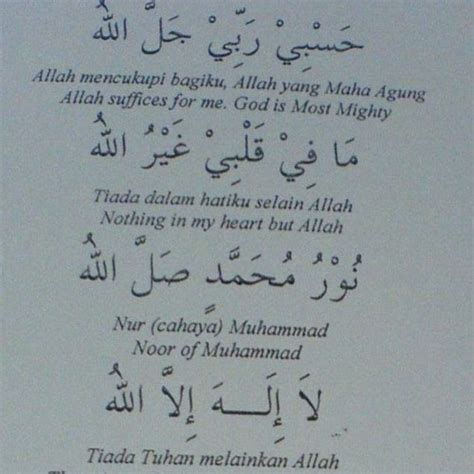 حَسْبِيْ رَبِّيْ جَلَّ اللهُ
Allah mencukupi bagiku, Allah yang Maha Agung
Allah suffices for me. God is Most Mighty
مَا فِيْ قَلْبِيْ غَيْرُ اللهُ
Tiada dalam hatiku selain Allah
Nothing in my heart but Allah
نُوْرُ مُحَمَّدٍ صَلَّ اللهُ
Nur (cahaya) Muhammad
Noor of Muhammad
لَا إِلَـــهَ إِلاَّ اللهُ
Tiada Tuhan melainkan Allah